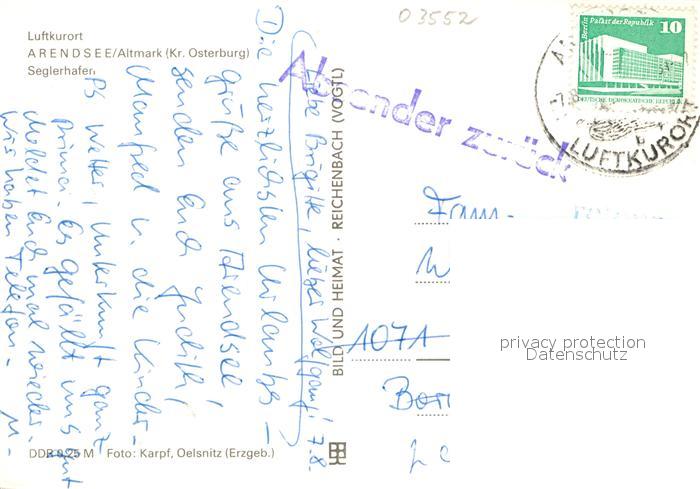 03552
Luftkurort
ARENDSEE/Altmark (Kr. Osterburg)
Seglerhafen
Berlin Palast der Republik
10
DEUTSCHE DEMOKRATISCHE REPUBLIK
LUFTKURORT
Absender zurück
Liebe Brigitte, lieber Wolfgang! 7.8.
Die herzlichsten Urlaubs-
grüße aus Arendsee
senden Euch Judith,
Manfred u. die Kinder.
PS Wetter, Unterkunft ganz
prima. Es gefällt uns gut
Meldet Euch mal wieder.
Wir haben Telefon.
BILD UND HEIMAT · REICHENBACH (VOGTL)
Fam.
1071
privacy protection
Datenschutz
DDR 0,25 M Foto: Karpf, Oelsnitz (Erzgeb.)